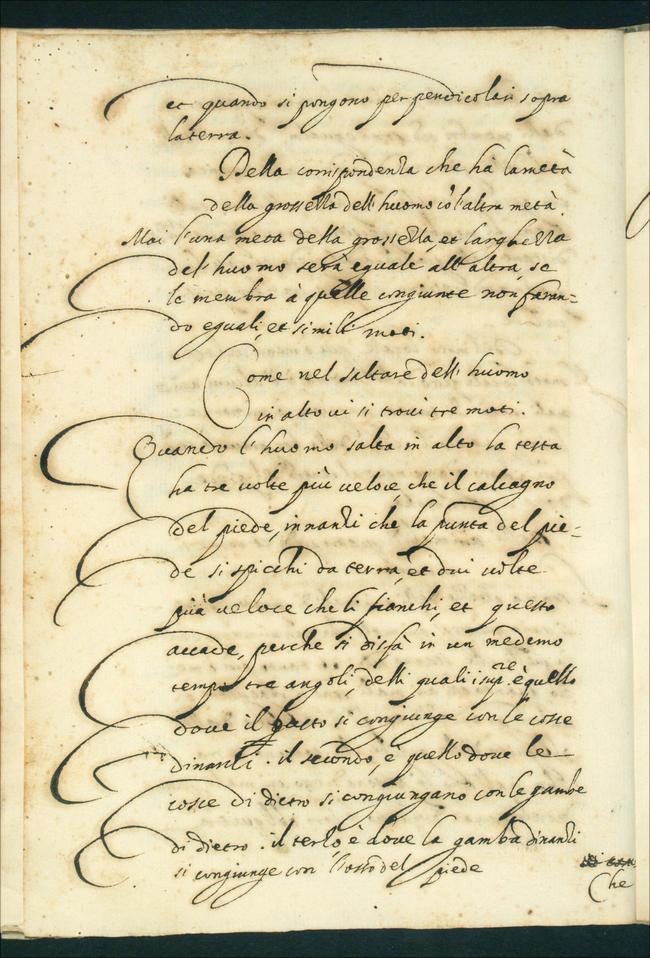 et quando si pongono perpendicolari sopra
la terra.
Della corrispondenza che hà la metà
della grossezza dell' huomo cò l'altra metà.
Mai l'una meta della grossezza, et larghezza
del' huomo serà eguale all' altra, se
le membra à quelle congiunte non faran=
do eguali, et simili moti.
Come nel saltare dell' huomo
in alto ui si troui tre moti.
Quando l'huomo salta in alto la testa
ha tre uolte più ueloce, che il calcagno
del piede, innanzi che la punta del pie=
de si spicchi da terra, et dui uolte
più ueloce che li fianchi, et questo
accade, perche si disfà in un medemo
tempo tre angoli, delli quali i sup.re è quello
doue il busto si congiunge con le cosse
dinanzi. il secondo, è quello doue le
cosce di dietro si congiungano con le gambe
di dietro. il terzo, è doue la gamba dinanzi
si congiunge con l'osso del piede
Che